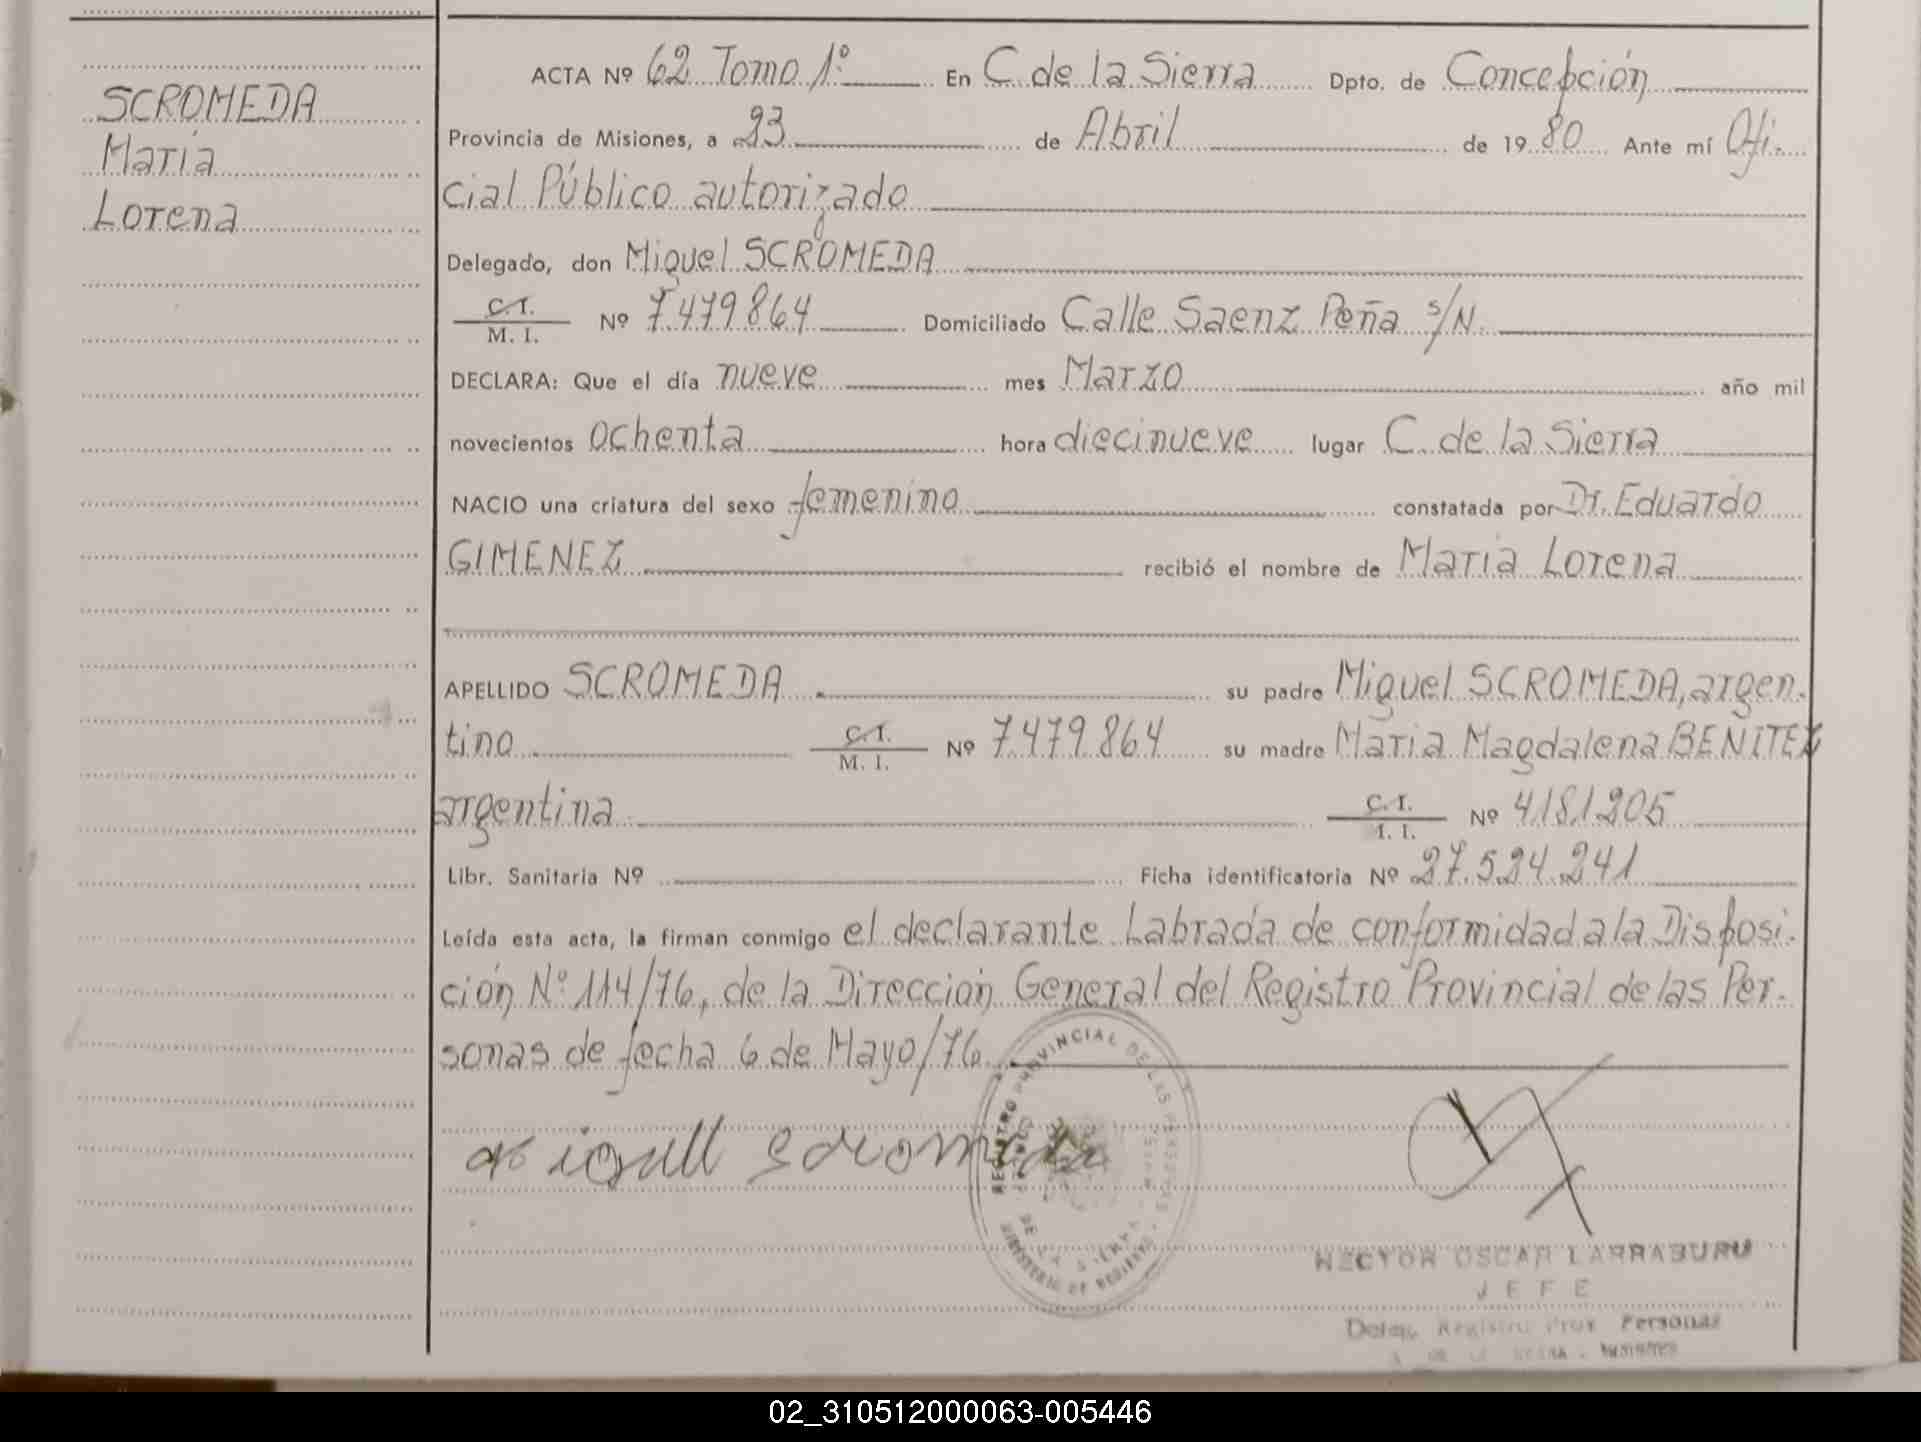 SCROMEDA
María
Lorena
ACTA Nº 62 Tomo 1º En C. de la Sierra Dpto. de Concepción
Provincia de Misiones, a 23 de Abril de 1980 Ante mí Ofi-
cial Público autorizado
Delegado, don Miguel SCROMEDA
C. I.
M. I. Nº 7.479.864 Domiciliado Calle Saenz Peña s/N.
DECLARA: Que el día nueve mes Marzo año mil
novecientos ochenta hora diecinueve lugar C. de la Sierra
NACIO una criatura del sexo femenino constatada por Dr. Eduardo
GIMENEZ recibió el nombre de María Lorena
APELLIDO SCROMEDA su padre Miguel SCROMEDA, argen-
tino C. I.
M. I. Nº 7.479.864 su madre María Magdalena BENITEZ
argentina C. I.
I. I. Nº 4.181.205
Libr. Sanitaria Nº Ficha identificatoria Nº 27.524.241
Leída esta acta, la firman conmigo el declarante Labrada de conformidad a la Disposi-
ción Nº 114/76, de la Dirección General del Registro Provincial de las Per-
sonas de fecha 6 de Mayo/76
REGISTRO PROVINCIAL DE LAS PERSONAS
DE LA SIERRA
MINISTERIO DE GOBIERNO
HECTOR OSCAR LARRABURU
JEFE
Deleg. Registro Prov. Personas
DE LA SIERRA - Misiones
02_310512000063-005446